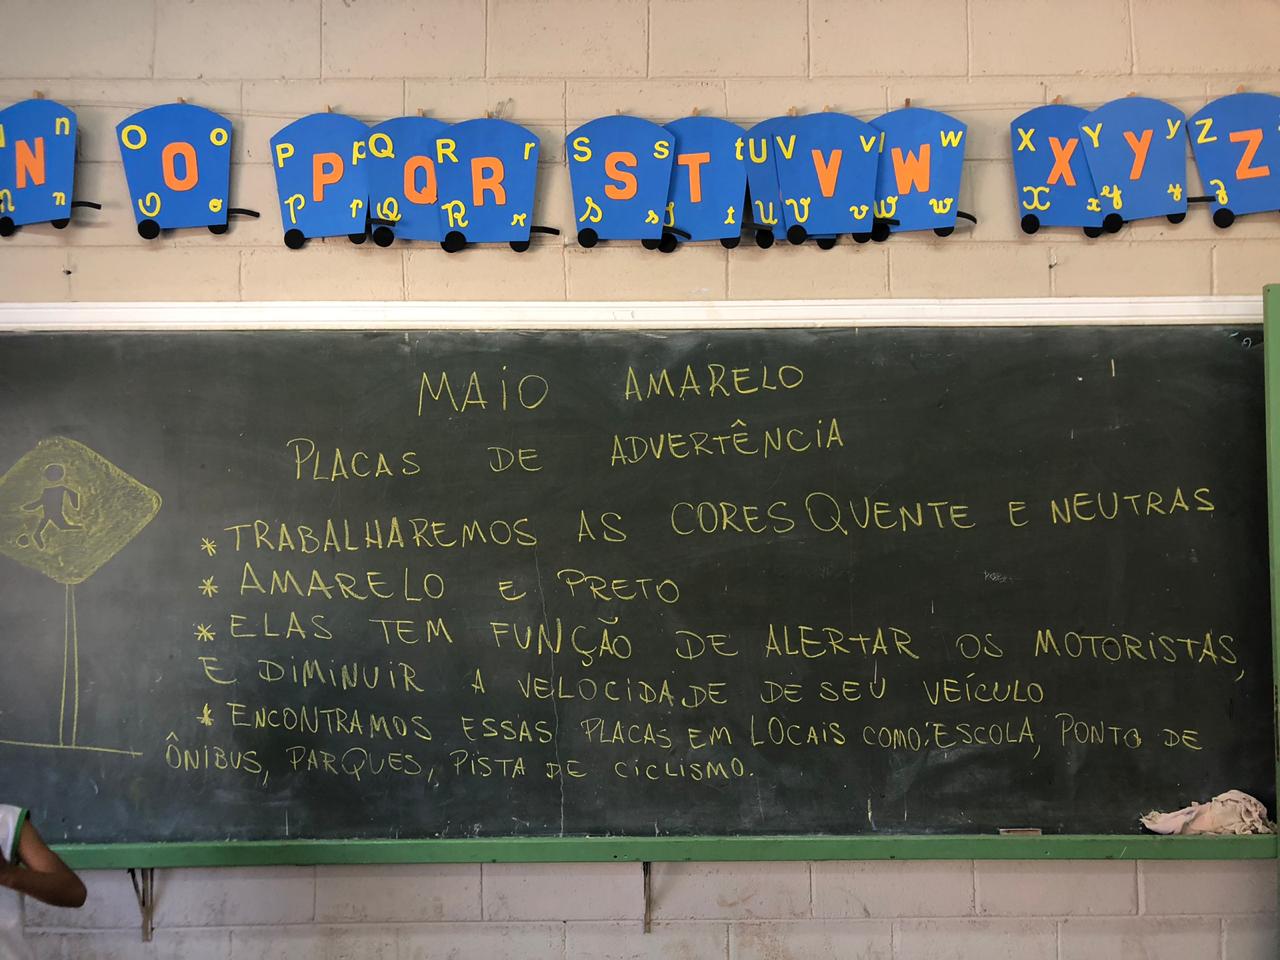 n N n n
O O o O o
P P p P p
Q Q Q
R R r R r
S S s S s
T t t
U U
V V v V v
W w W w
X X X x
Y Y y y y
Z Z z
MAIO AMARELO
PLACAS DE ADVERTÊNCIA
* TRABALHAREMOS AS CORES QUENTE E NEUTRAS
* AMARELO E PRETO
* ELAS TEM FUNÇÃO DE ALERTAR OS MOTORISTAS,
E DIMINUIR A VELOCIDADE DE SEU VEÍCULO
* ENCONTRAMOS ESSAS PLACAS EM LOCAIS COMO: ESCOLA, PONTO DE
ÔNIBUS, PARQUES, PISTA DE CICLISMO.